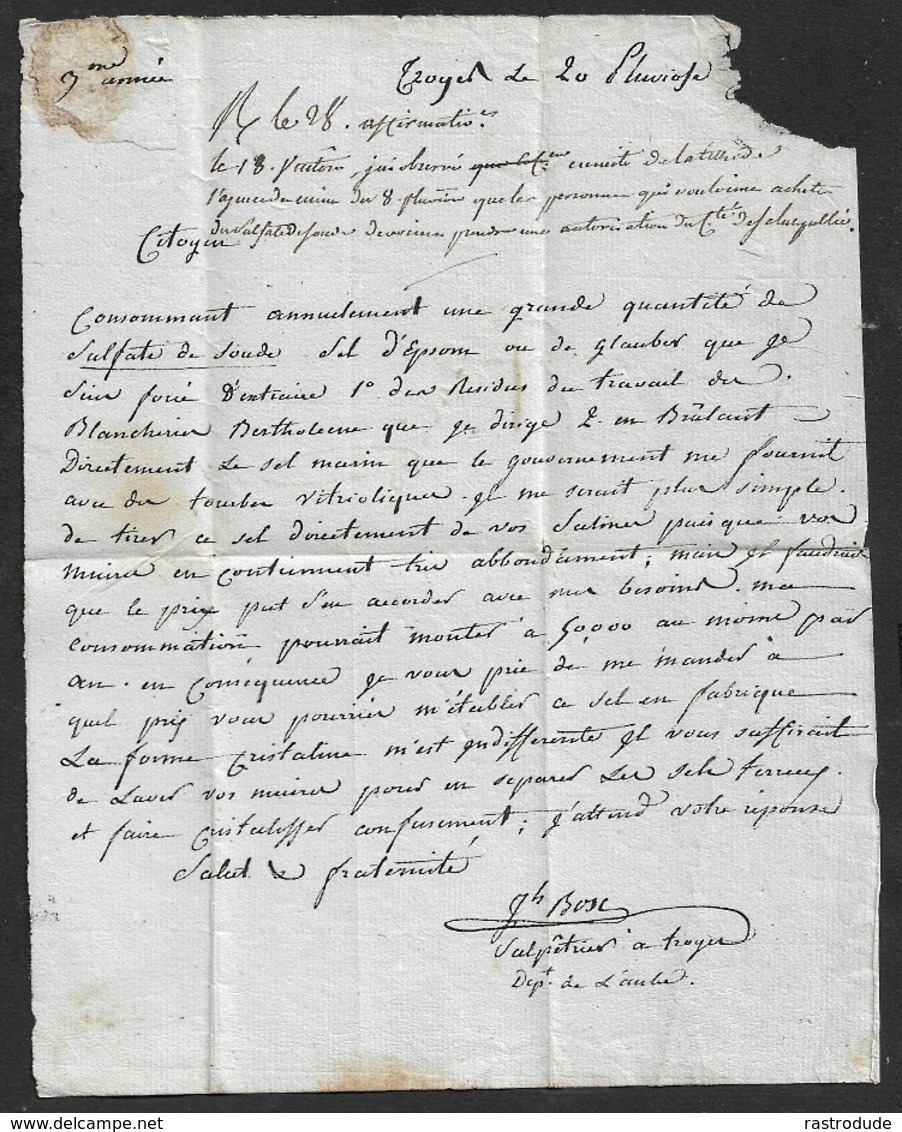 3me année
Troyes Le 20 Pluviose
R le 28. affirmativ.
le 18. Ventose, j'ai observé que en suite de la lettre de
l'agence des mines du 8 pluviose que les personnes qui vouloient acheter
du Sulfate de Soude devoient prendre une autorisation du Cté. de Salut public.
Citoyen
Consommant annuelement une grande quantité de
Sulfate de Soude Sel d'Epsom ou de glauber que je
suis forcé D'extraire 1º des Residus du travail du
Blancheries Bertholeene que je dirige 2. en Brûlant
Directement Le sel marin que le gouvernement me fournit
avec des tourbes vitrioliques. il me serait plus simple
de tirer ce sel directement de vos Salines puisque vos
muires en contiennent très abbondâment; mais il faudrait
que le prix put s'en accorder avec mes besoins. ma
consommation pourrait monter à 50,000 au moins par
an. en conséquence je vous prie de me mander à
quel prix vous pourriez m'établir ce sel en fabrique
La forme cristaline m'est indifferente il vous suffirait
de Laver vos muires pour en separer Les sels terreux
et faire cristalisser confusement; j'attend votre réponse
Salut & fraternité
Jh Bosc
Salpêtrier à troyes
Dept. de L'aube.
rastrodude